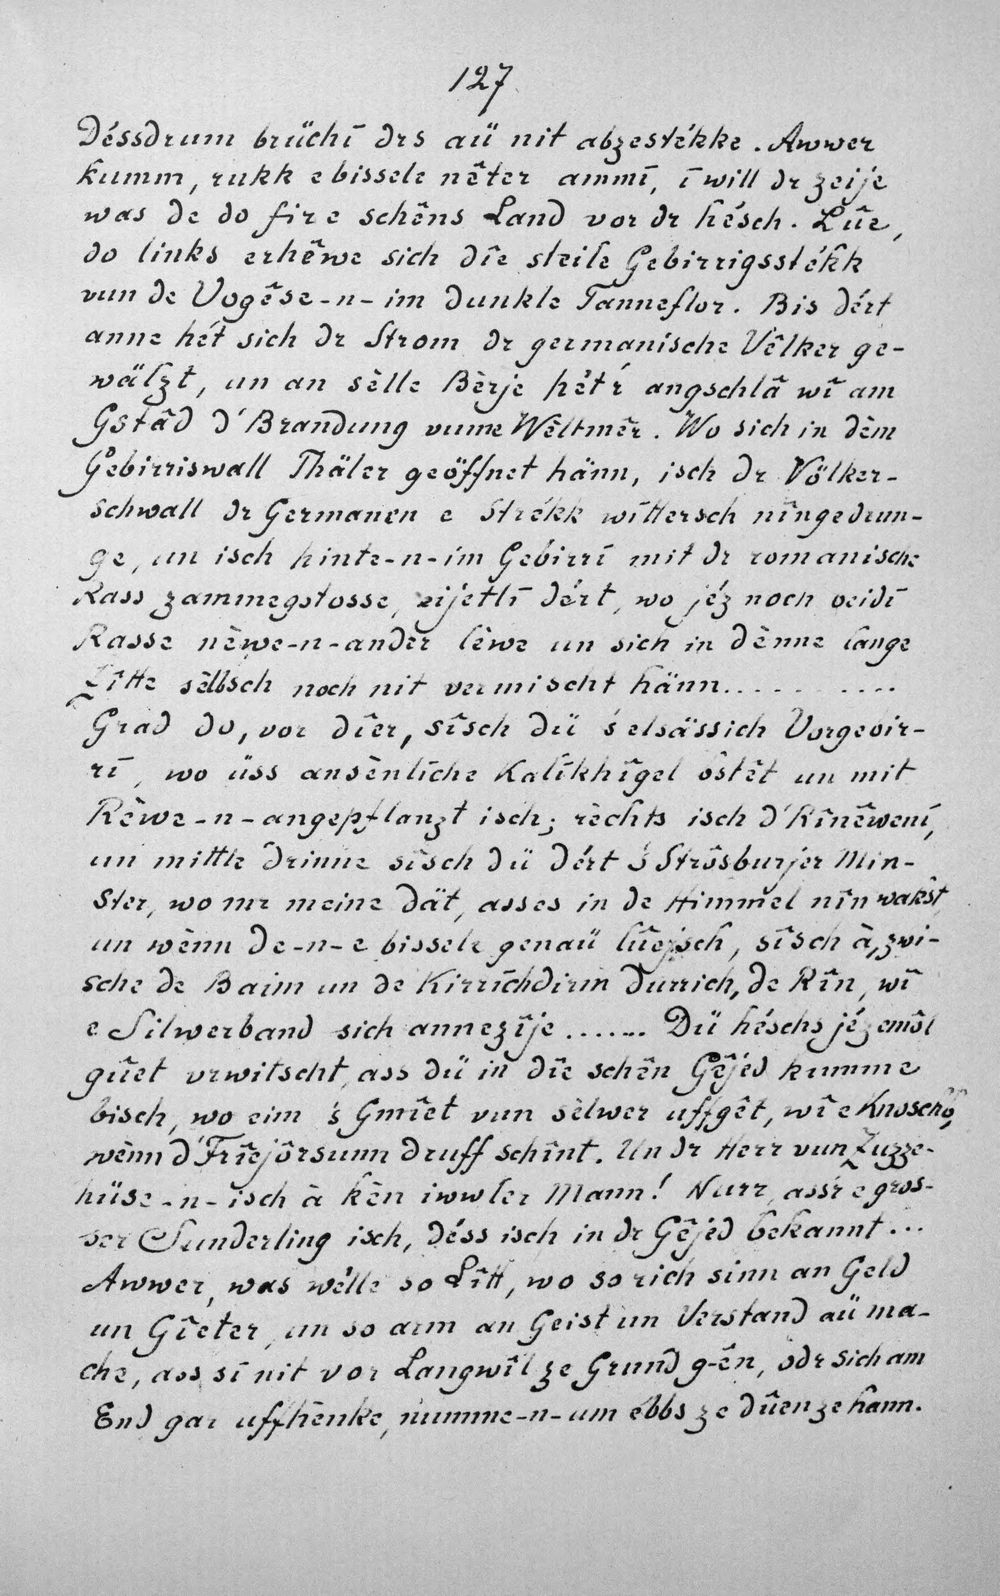 127
Déssdrum brüchī drs aü nit abzestékke. Awwer
kumm, rukk e bissele nêter ammī, ī will dr zeije
was de do fir e schêns Land vor dr hésch. Lûe,
do links erhêwe sich dîe steile Gebirrigsstékk
vun de Vogêse-n-im dunkle Tanneflor. Bis dért
anne hét sich dr Strom dr germanische Vêlker ge-
wälzt, un an sèlle Bèrje hét'r angschlâ wî am
Gstâd d'Brandung vume Wèltmêr. Wo sich in dèm
Gebirriswall Thäler geöffnet hänn, isch dr Völker-
schwall dr Germanen e Strékk wittersch nîngedrun-
ge, un isch hinte-n-im Gebirrī mit dr romanische
Rass zammegstosse, eijetlī dért, wo jéz noch beidī
Rasse nèwe-n-ander lèwe un sich in dènne lange
Zîtte sèlbsch noch nit vermischt hänn..........
Grad do, vor dîer, sîsch dü 's elsässich Vorgebir-
rī, wo üss ansènlīche Kalīkhîgel bstêt un mit
Rèwe-n-angepflanzt isch; rèchts isch d'Rînêwenī,
un mittle drinne sîsch dü dért 's Strôsburjer Min-
ster, wo mr meine dät, asses in de Himmel nîn wakst,
un wènn de-n-e bissele genaü lûejsch, sîsch à, zwi-
sche de Baim un de Kirrīchdirm durrich, de Rîn, wî
e Silwerband sich annezîje....... Dü héschs jézemôl
gûet vrwitscht, ass dü in dîe schên Gêjed kumme
bisch, wo eim 's Gmîet vun sèlwer uffgêt, wî e Knoschb,
wènn d'Frîejôrsunn druff schînt. Un dr Herr vun Zuzze-
hüse-n-isch à kên iwwler Mann! Nurr, ass'r e gros-
ser Sunderling isch, déss isch in dr Gêjed bekannt...
Awwer, was wélle so Lîtt, wo so rich sinn an Geld
un Gîeter, un so arm an Geist un Verstand aü ma-
che, ass sī nit vor Langwîl ze Grund gên, odr sich am
End gar uffhènke, numme-n-um ébbs ze dûen ze hann.